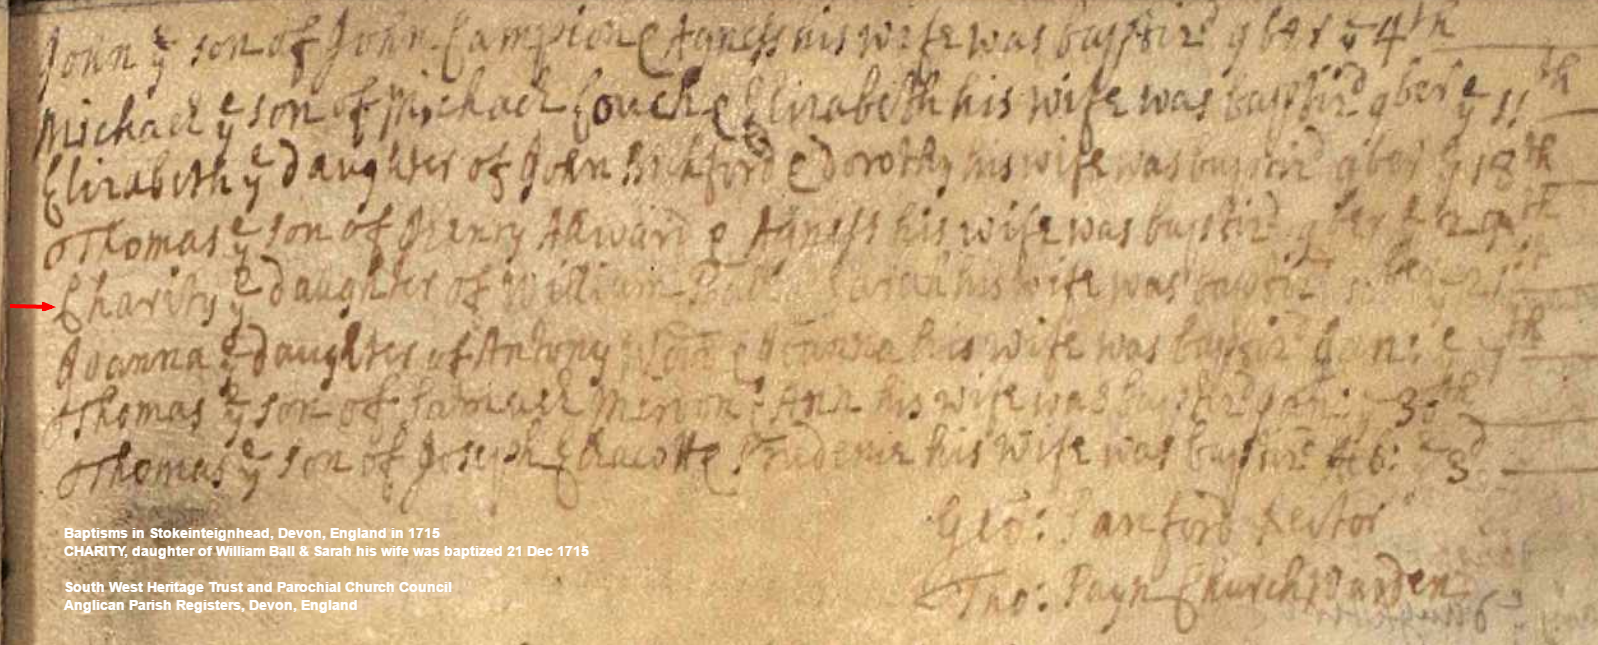 John yͤ son of John Campion & Agness his wife was baptizd 9ber yͤ 4th
Michael yͤ son of Michael Couch & Elizabeth his wife was baptizd 9ber yͤ 11th
Elizabeth yͤ daughter of John Bickford & Dorothy his wife was baptizd 9ber yͤ 18th
Thomas yͤ son of Henry & Agness his wife was baptizd 9ber yͤ
Charity yͤ daughter of William Sarah his wife was baptizd
Joanna yͤ daughter of Antony & his wife was baptizd Jan: yͤ 7th
Thomas yͤ son of Samuell & Ann his wife was baptizd Jan: yͤ
Thomas yͤ son of Joseph & his wife was baptizd yͤ 3d
Geo: Sanford Rector
Tho: Payn Church Warden
Baptisms in Stokeinteignhead, Devon, England in 1715
CHARITY, daughter of William Ball & Sarah his wife was baptized 21 Dec 1715
South West Heritage Trust and Parochial Church Council
Anglican Parish Registers, Devon, England